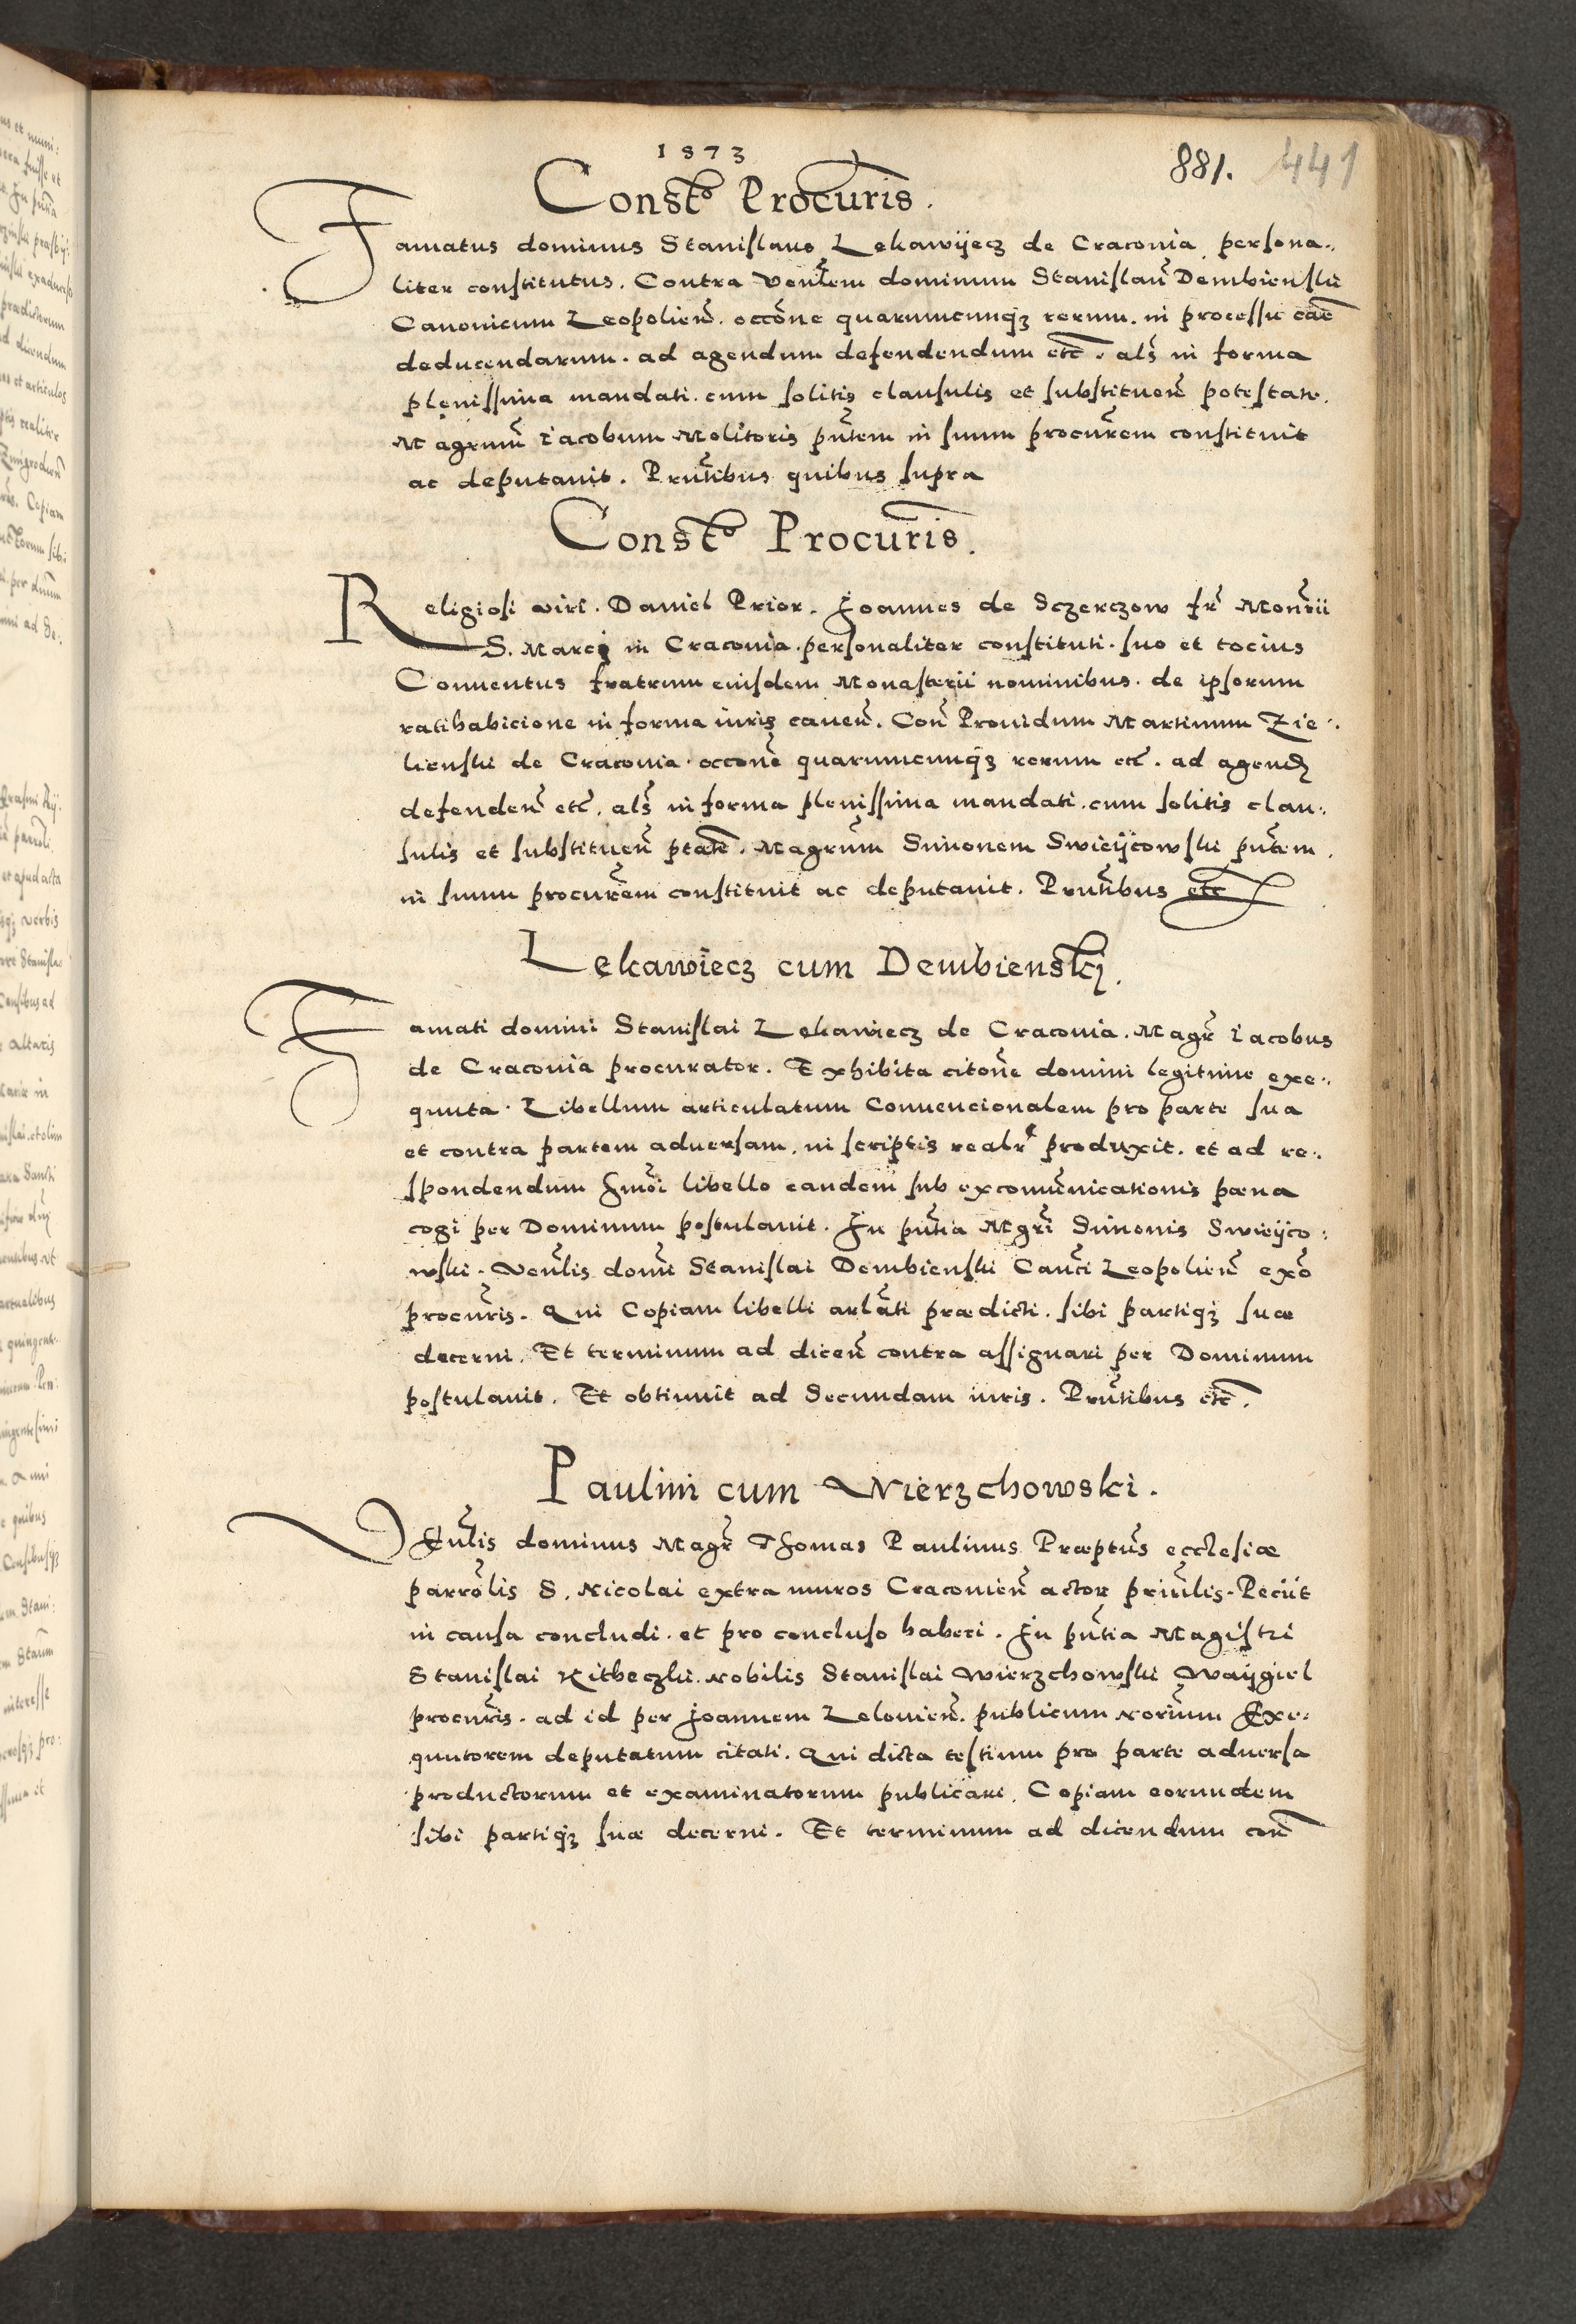 1573
881. 441
Constō Procuris.
Famatus dominus Stanislaus Lekawijecz de Craconia persona..
liter constitutus. Contra Venlem dominum Stanislaū Dembienski
Canonicum Leopolien̄. occōne quarumcunqȝ rerum. in processu cāe
deducendarum. ad agendum defendendum etc̄. als̄ in forma
plenissima mandati. cum solitis clausulis et substituen̄ potestate.
Magrum̄ Iacobum Molitoris pn̄tem in suum procurem̄ constituit
ac deputauit. Prn̄tibus quibus supra
Constō Procuris.
Religiosi viri. Daniel Prior. Joannes de Sczerczow fr̄ Monriī
S. Marci in Craconia. personaliter constituti. suo et tocius
Conuentus fratrum eiusdem Monasterii nominibus. de ipsorum
ratihabicione in forma iuris cauen̄. Con̄ Prouidum Martinum Zie..
lienski de Craconia. occonē quarumcunqȝ rerum etc̄. ad agend
defenden̄ etc̄. als̄ in forma plenissima mandati. cum solitis clau:
sulis et substituen̄ ptatē. Magrum̄ Simonem Swieijcowski pn̄tem.
in suum procurem̄ constituit ac deputauit. Prn̄tibus etc
Lekawiecz cum Dembienskj.
Famati domini Stanislai Lekawiecz de Craconia. Magr̄ Iacobus
de Craconia procurator. Exhibita citonē domini legitime exe..
quuta. Libellum articulatum Conuencionalem pro parte sua
et contra partem aduersam. in scriptis realr̄ produxit. et ad re..
spondendum hmōi libello eandem sub excomūnicationis pæna
cogi per Dominum postulauit. In pn̄tia Mgrī Simonis Swieijco:
wski. Venlis̄ domī Stanislai Dembienski Canc̄i Leopolien̄ exō
procuris̄. Qui Copiam libelli arlāti prædicti. sibi partiqȝ suæ
decerni. Et terminum ad dicen̄ contra assignari per Dominum
postulauit. Et obtinuit ad Secundam iuris. Prn̄tibus etc̄.
Paulini cum Wierzchowski.
VEnlis̄ dominus Magr̄ Thomas Paulinus Præptus̄ ecclesiæ
parrōlis S. Nicolai extra muros Cracouien̄ actor prinlis̄. Peciit
in causa concludi. et pro concluso haberi. In pn̄tia Magistri
Stanislai Kitheczki. Nobilis Stanislai Wierzchowski Waijgiel
procuris̄. ad id per Joannem Lelouien̄. publicum Norium̄ Exe:
quutorem deputatum citati. Qui dicta testium pro parte aduersa
productorum et examinatorum publicari. Copiam eorundem
sibi partiqȝ suæ decerni. Et terminum ad dicendum con̄